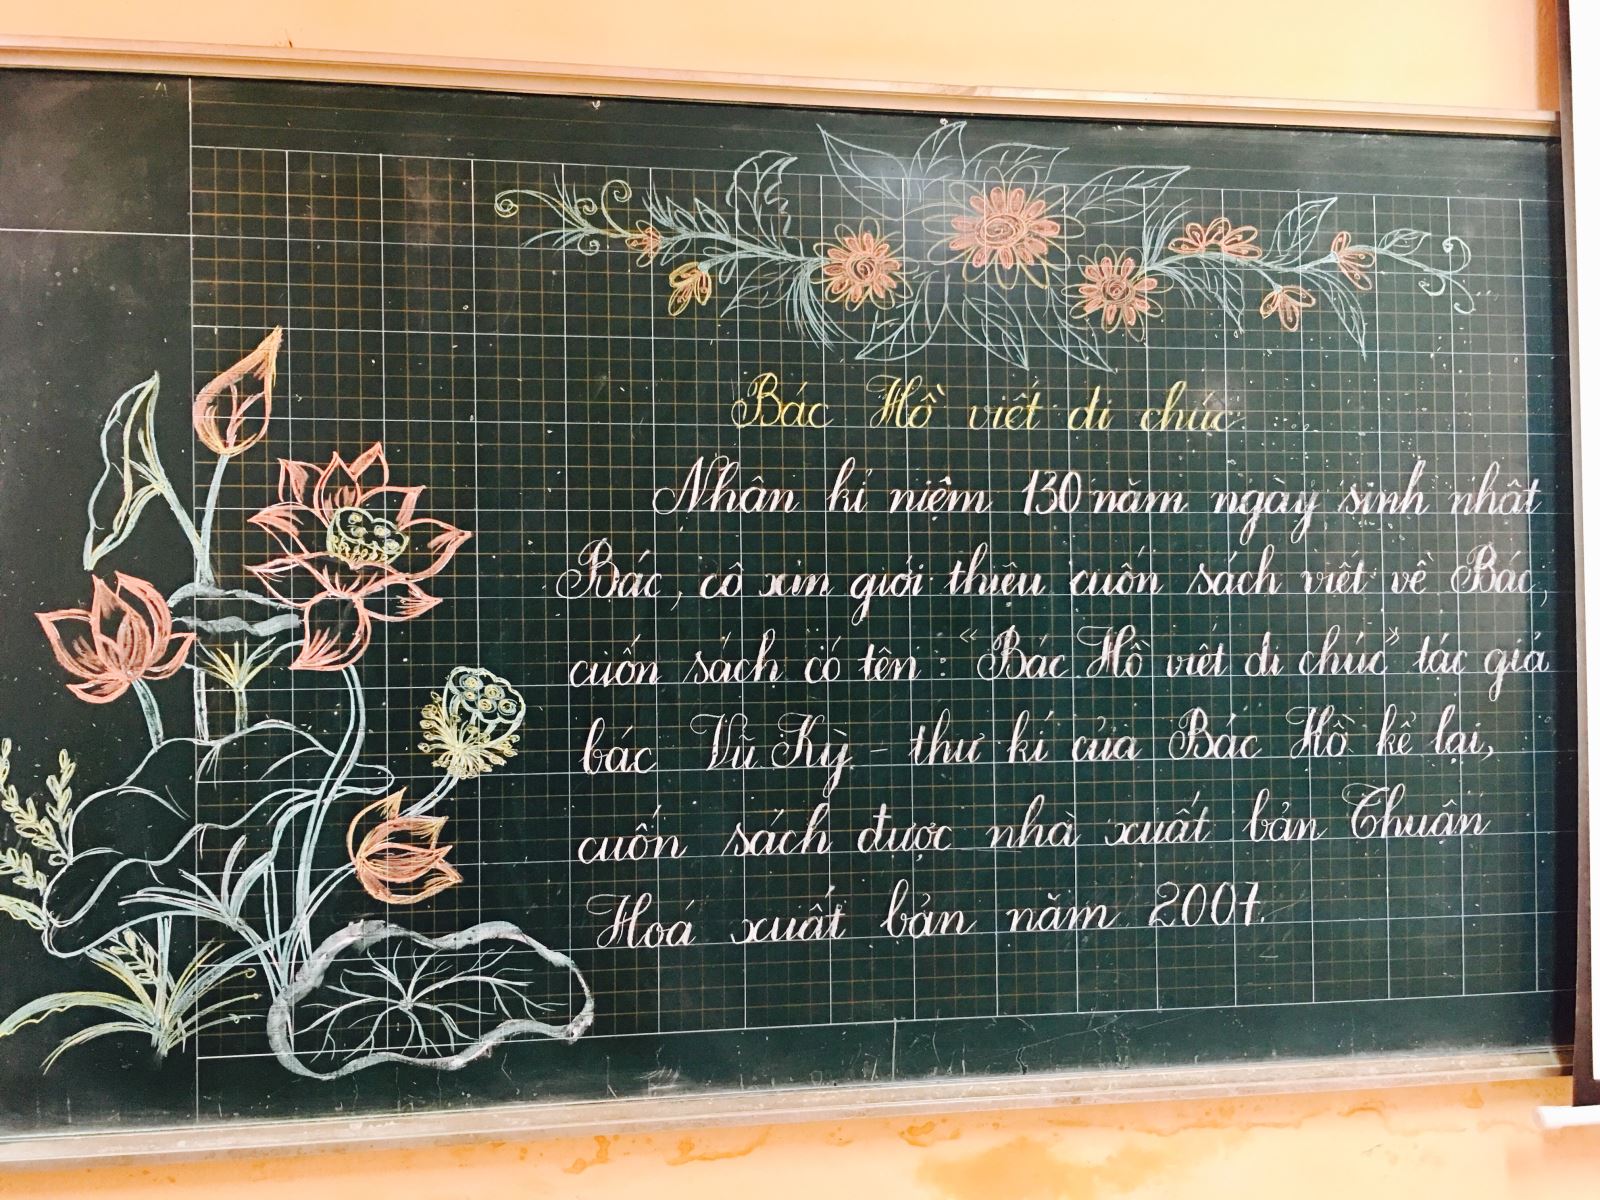 Bác Hồ viết di chúc
Nhân kỉ niệm 130 năm ngày sinh nhật
Bác, cô xin giới thiệu cuốn sách viết về Bác,
cuốn sách có tên: "Bác Hồ viết di chúc" tác giả
bác Vũ Kỳ - thư kí của Bác Hồ kể lại,
cuốn sách được nhà xuất bản Thuận
Hoá xuất bản năm 2007.